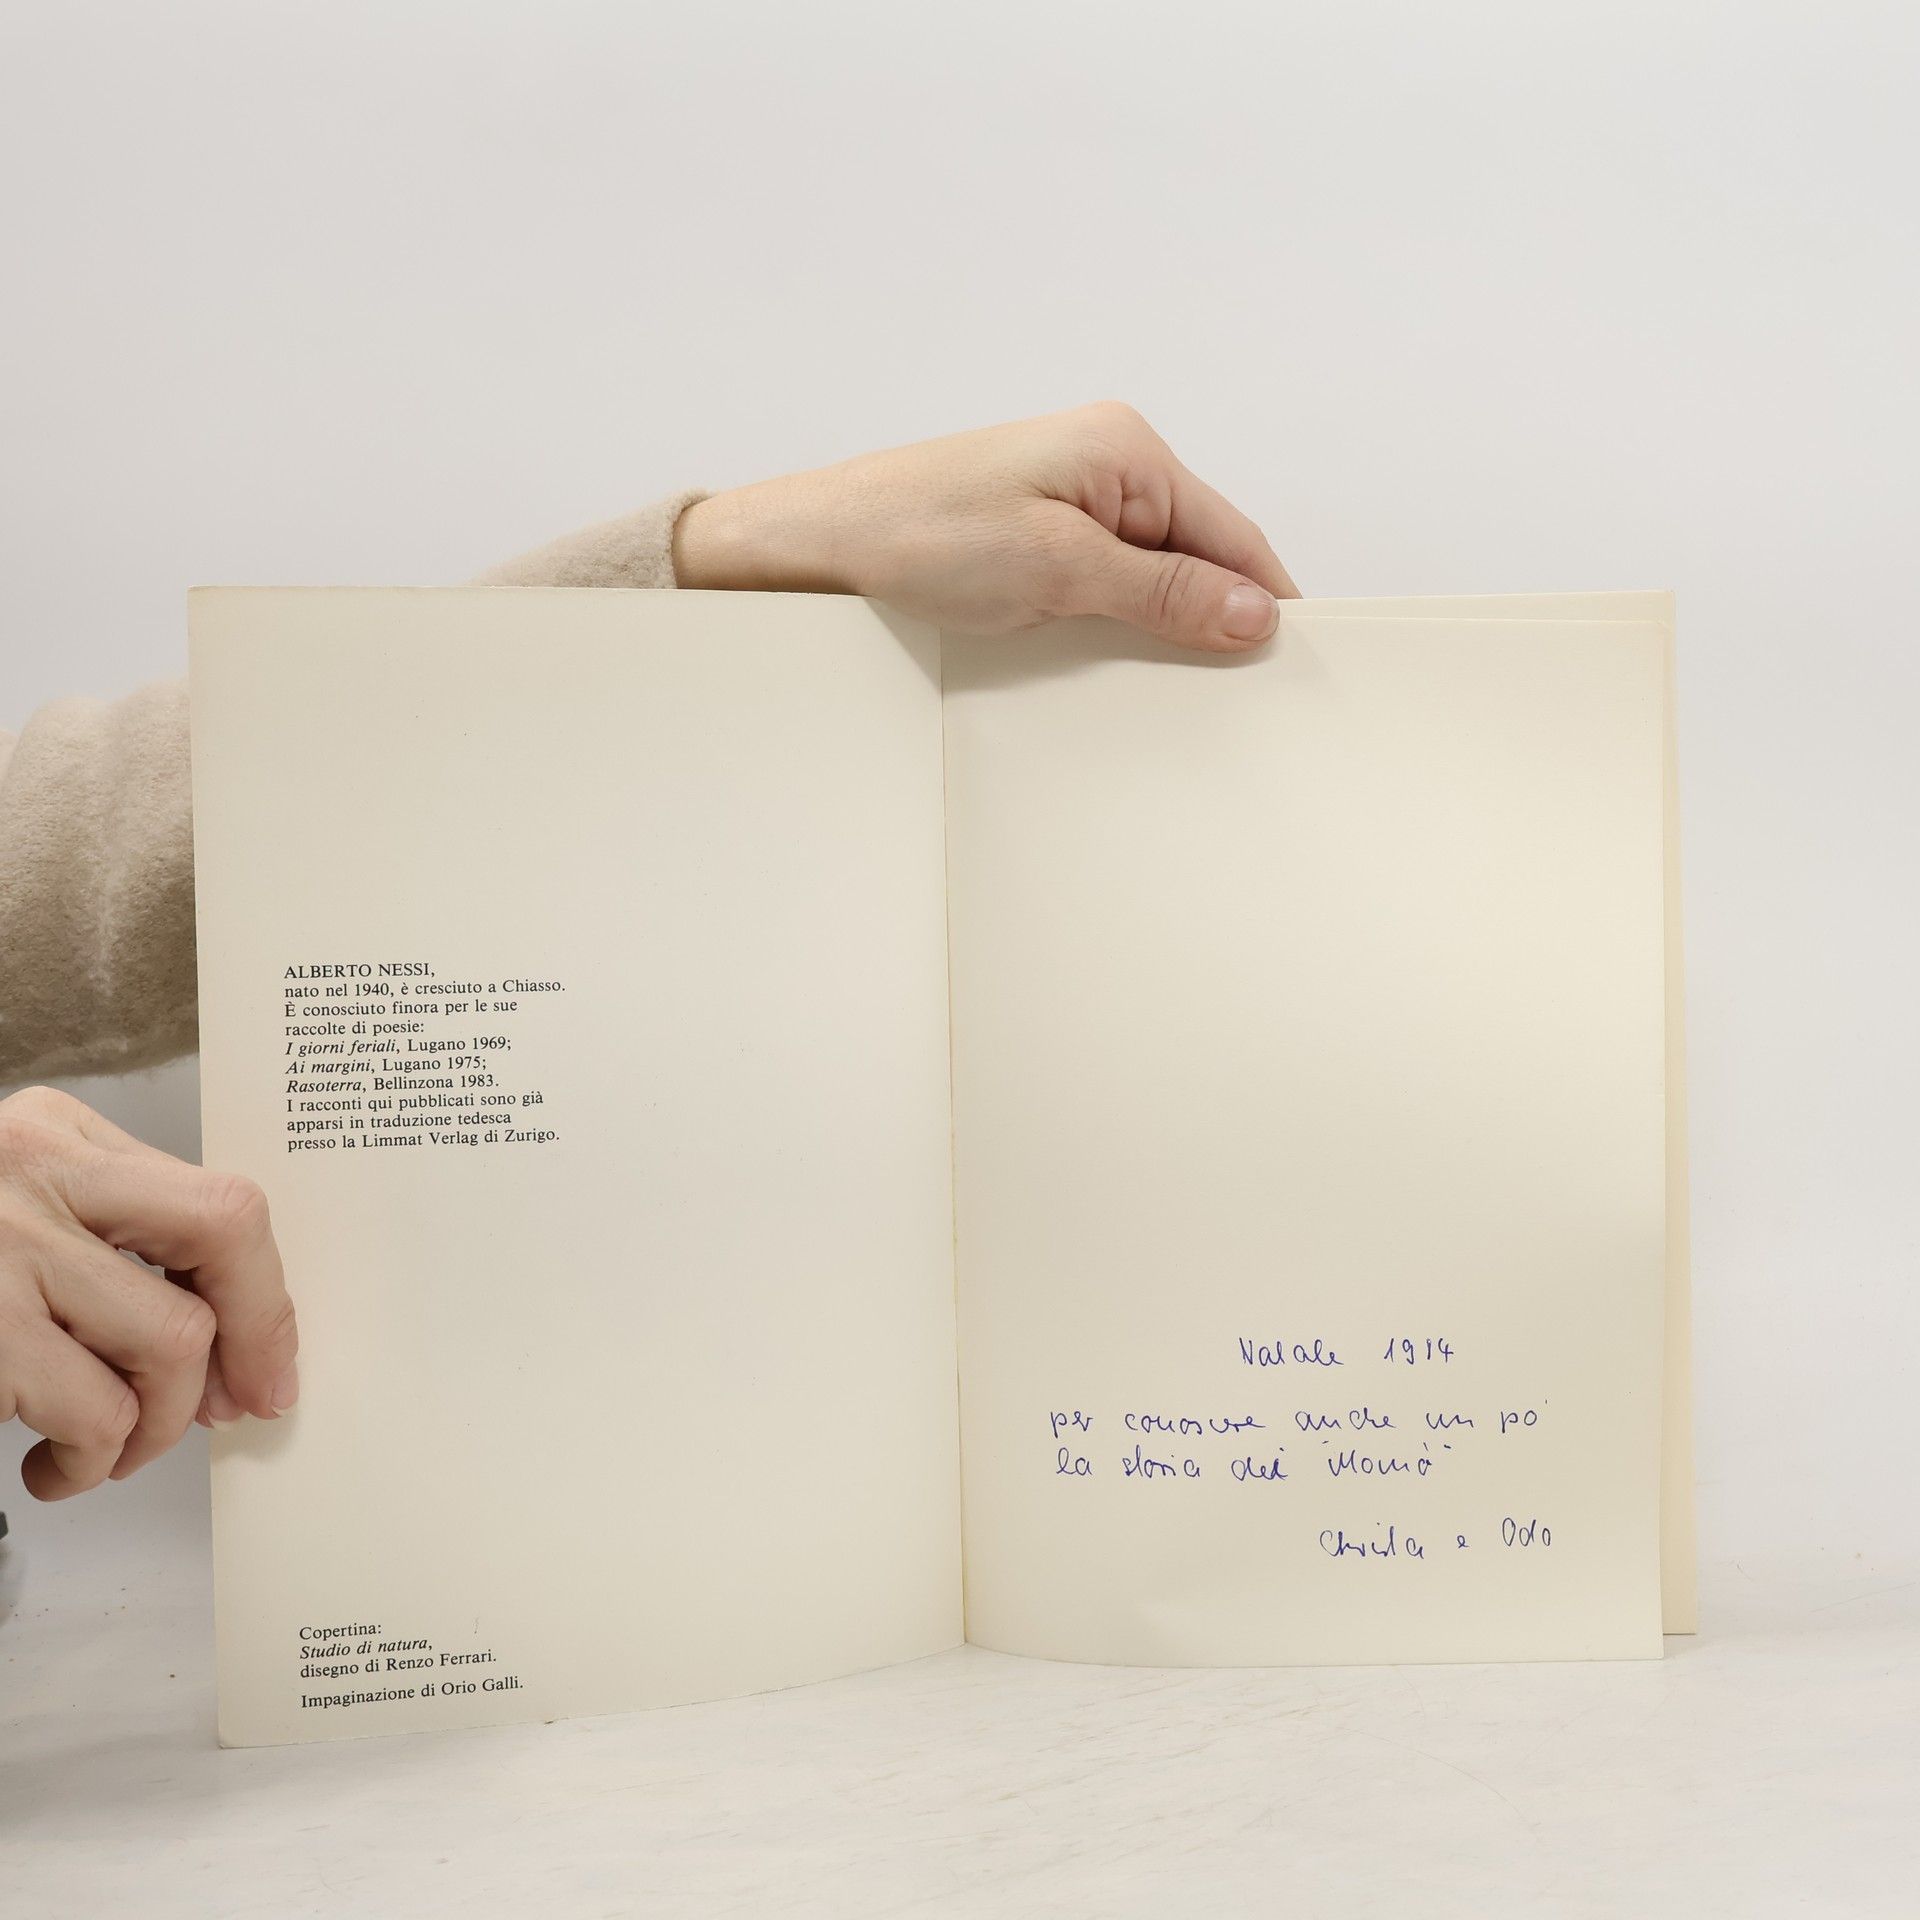 ALBERTO NESSI,
nato nel 1940, è cresciuto a Chiasso.
È conosciuto finora per le sue
raccolte di poesie:
I giorni feriali, Lugano 1969;
Ai margini, Lugano 1975;
Rasoterra, Bellinzona 1983.
I racconti qui pubblicati sono già
apparsi in traduzione tedesca
presso la Limmat Verlag di Zurigo.
Copertina:
Studio di natura,
disegno di Renzo Ferrari.
Impaginazione di Orio Galli.
Natale 1984
per conoscere anche un po'
la storia dei "Momò"
Christa e Odo